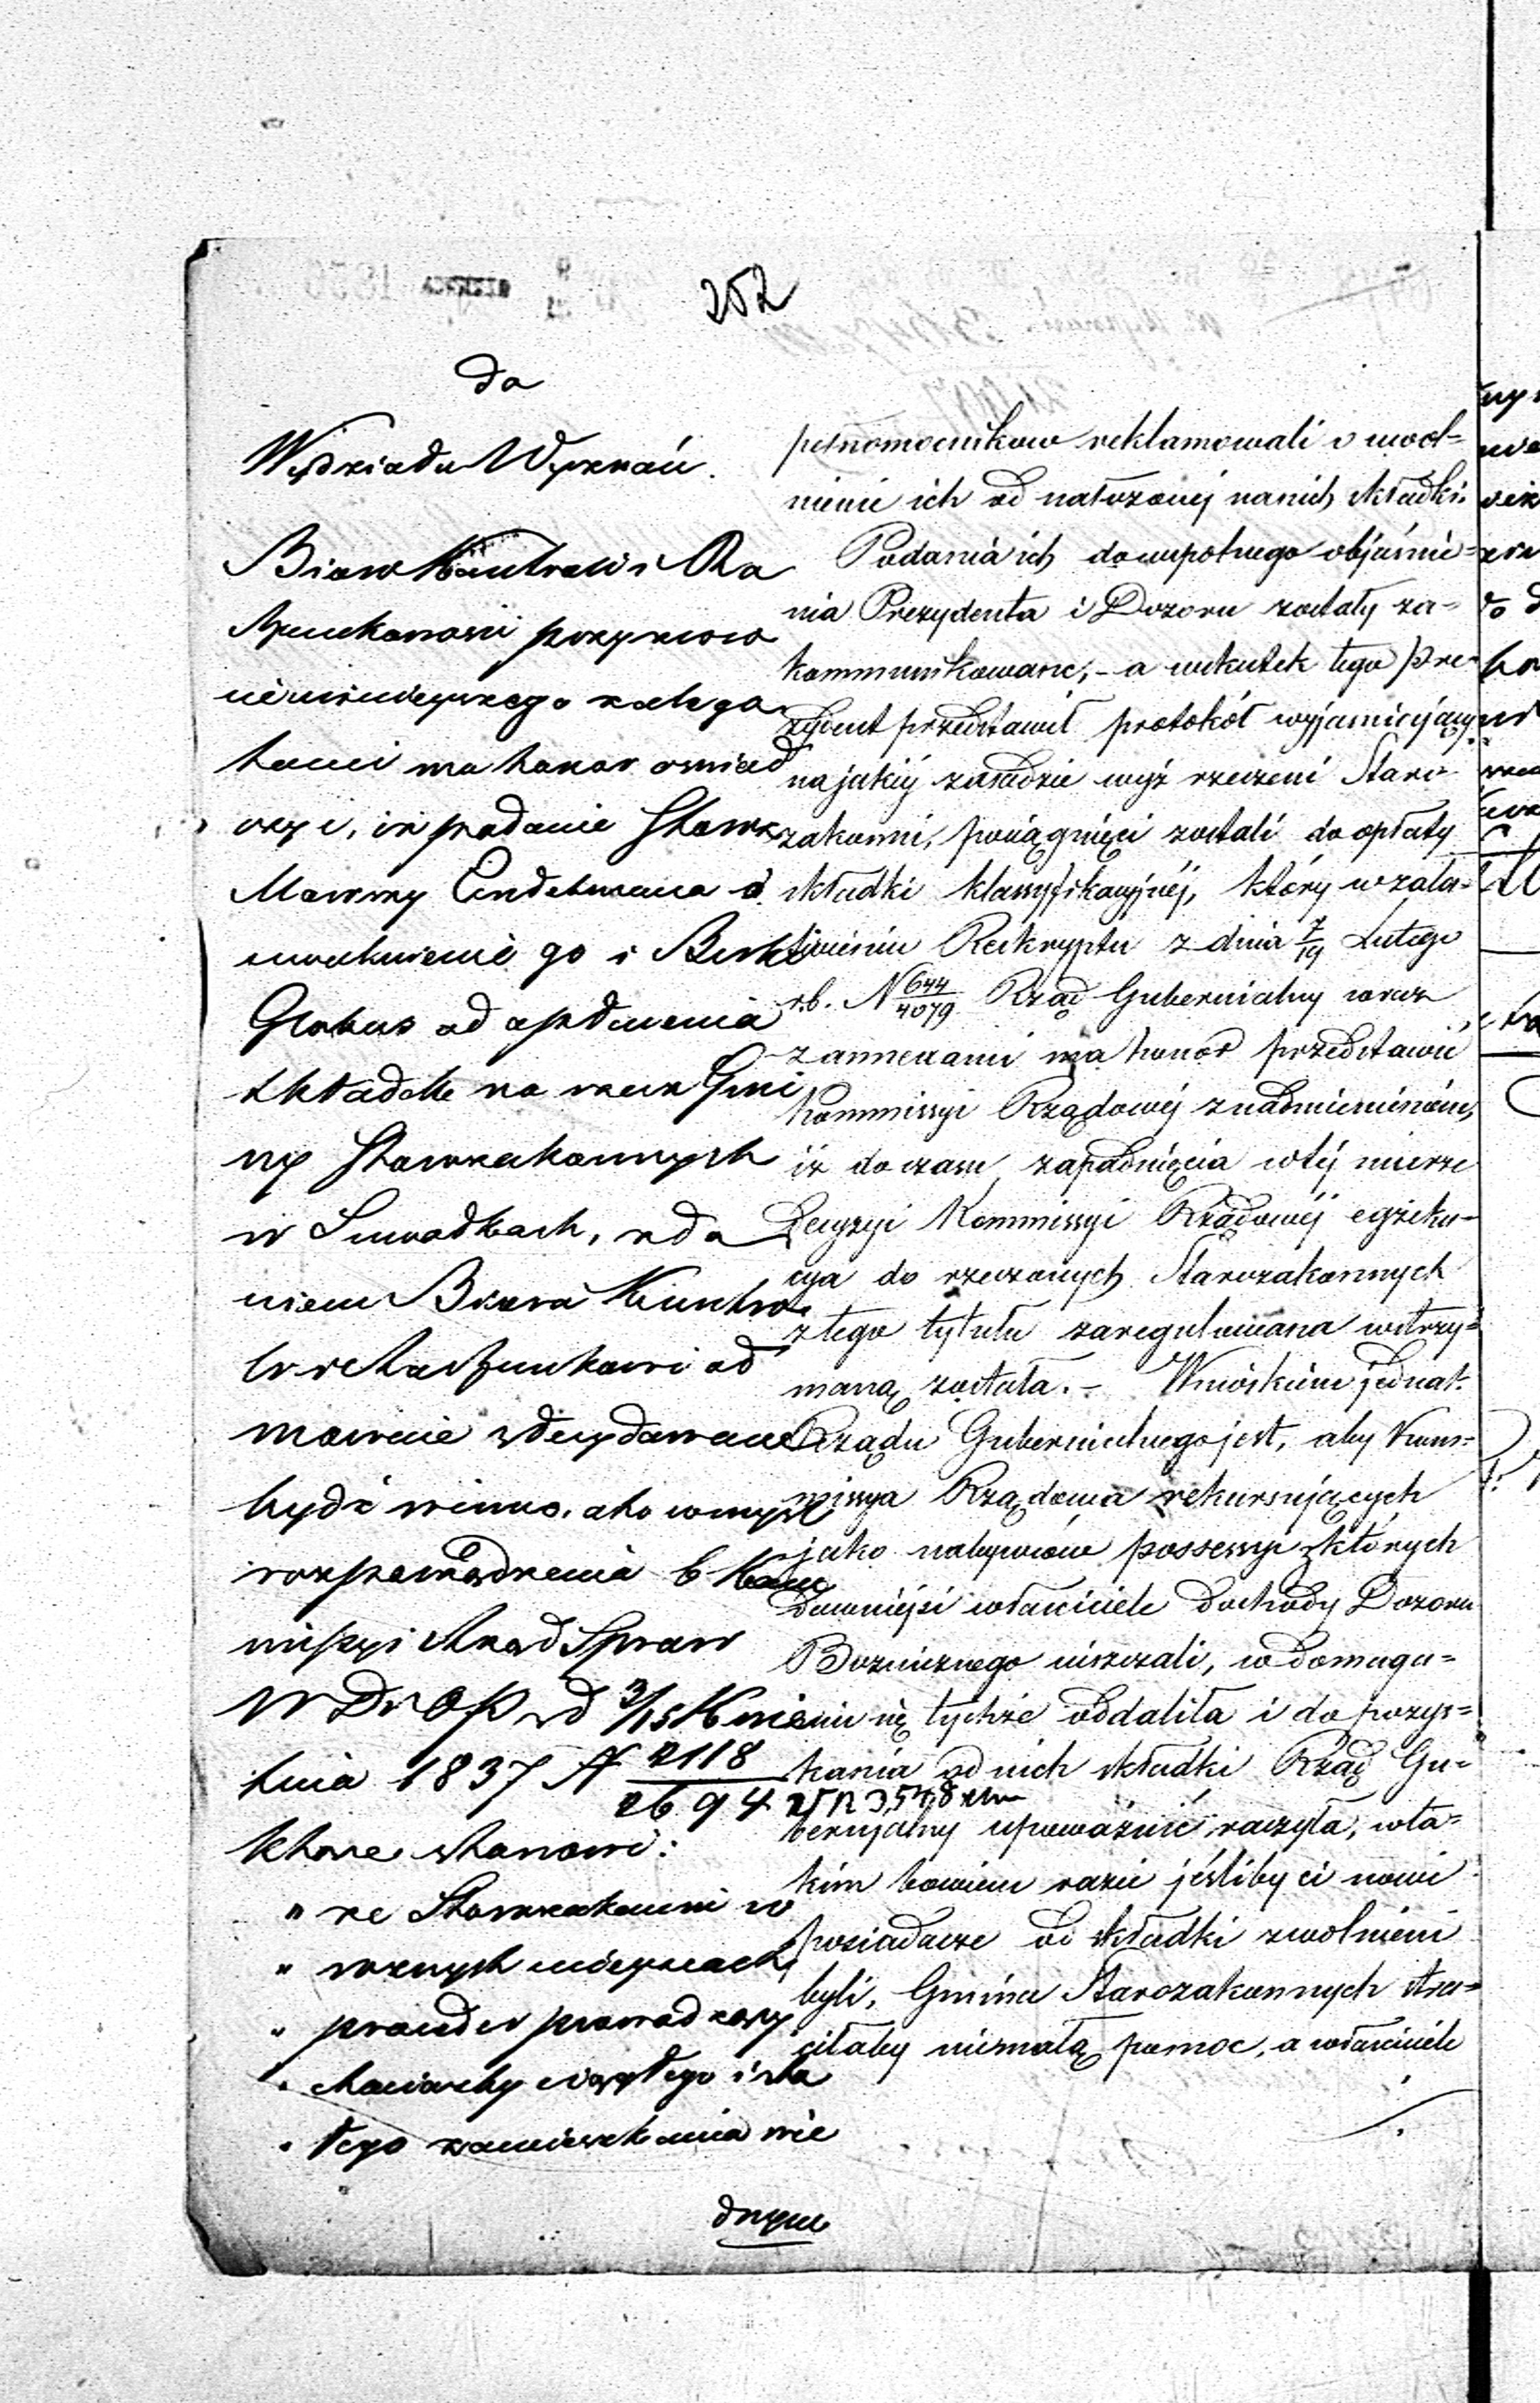 252
do
Wydziału Wyznań.
Biuro Kontroli i Ra
chunkowości przy zwro
cie niniejszego z alega
tami ma honor oświad
czyć, iż podanie Starz.
Mowszy Endelmana o
uwolnienie go i Berka
Globus od opłacenia
składki na rzecz Gmi
ny Starozakonnych
w Suwałkach, zda
niem Biura Kontro
li i Rachunkowi od
mownie zdecydowane
bydź winno, a to w myśl
rozporządzenia b Kom
missyi Rząd Spraw
W D i O P z d 3/15 Kwie
tnia 1837 N 2118/2694
które stanowi:
" że Starozakonni w
" różnych miejscach
" prawdziw prowadzący
" chociażby ciągłego i sta
" łego zamieszkania nie
dnyw
pełnomocników reklamowali o uwol=
nienie ich od nałożonej nanich składki.
Podania ich do zupełnego objaśnie=
nia Prezydenta i Dozoru zostały za=
kommunikowane, - a wskutek tego Pre=
zydent przedstawił protokół wyjaśniający
na jakiéj zasadzie wyż rzeczeni Staro=
zakonni, pociągnięci zostali do opłaty
składki klassyfikacyjnéj, który w zała=
twieniu Reskryptu z dnia 7/19 Lutego
r.b. N 644/4079 Rząd Gubernialny wraz
z annexami ma honor przedstawić
Kommissyi Rządowéj z nadmienieniem,
iż do czasu zapadnięcia w téj mierze
Decyzyi Kommissyi Rządowéj egzeku=
cya do rzeczonych Starozakonnych
z tego tytułu zaregulowana wstrzy=
maną została. - Wnioskiem jednak
Rządu Gubernialnego jest, aby Kom=
missya Rządowa rekursujących
jako nabywców possessyi z których
dawniejsi właściciele dochody Dozoru
Bozniczego uiszczali, w domaga=
niu się tychże oddaliła i do pozys=
kania od nich składki Rząd Gu=
bernjalny upoważnić raczyła, w ta=
kim bowiem razie jeśliby ci nowi
posiadacze od składki zwolnieni
byli, Gmina Starozakonnych stra=
ciłaby niemałą pomoc, a właściciele